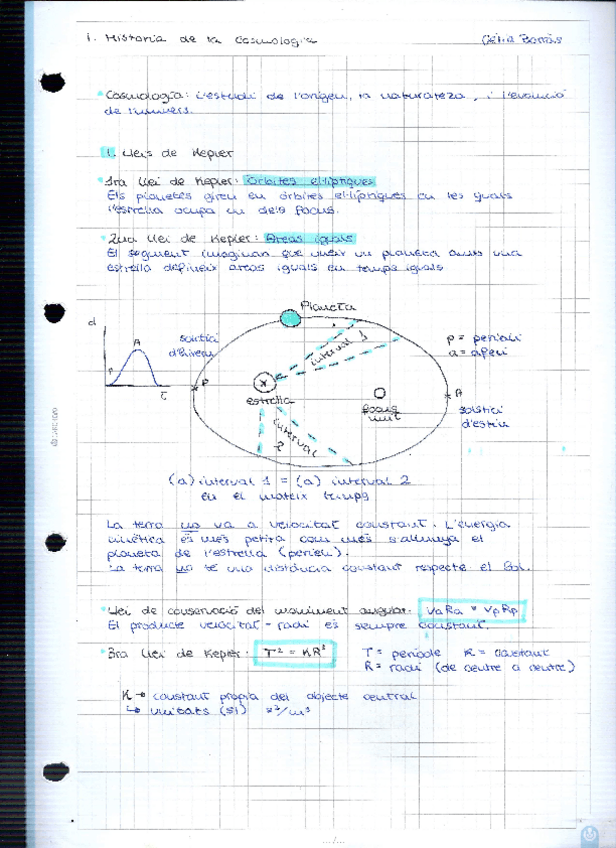 1. Història de la Cosmologia
Cèlia Borràs
Cosmología: L'estudi de l'origen, la naturalesa, i l'evolució
de l'univers.
1. Lleis de Kepler
1ra Llei de Kepler: òrbites el·líptiques
Els planetes giren en òrbites el·líptiques en les quals
l'estrella ocupa un dels focus.
2na Llei de Kepler: Àrees iguals
El segment imaginari que uneix un planeta amb una
estrella defineix àrees iguals en temps iguals
Planeta
d
A
P
t
solstici
d'hivern
interval 1
p = periheli
a = afeli
P
estrella
focus
A
solstici
d'estiu
interval
2
(a) interval 1 = (a) interval 2
en el mateix temps
La terra no va a velocitat constant. L'energia
cinètica és més petita com més s'allunya el
planeta de l'estrella (periheli).
La terra no té una distància constant respecte el Sol.
Llei de conservació del moviment angular: VaRa = VpRp
El producte velocitat - radi és sempre constant.
3ra Llei de Kepler: T² = KR³
T = període K = constant
R = radi (de centre a centre)
K → constant pròpia del objecte central
↳ unitats (SI) s²/m³